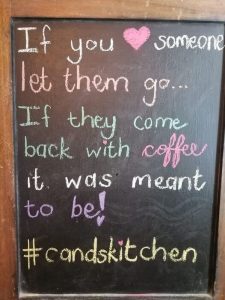 If you ♥ someone
let them go...
If they come
back with coffee
it was meant
to be!
#candskitchen